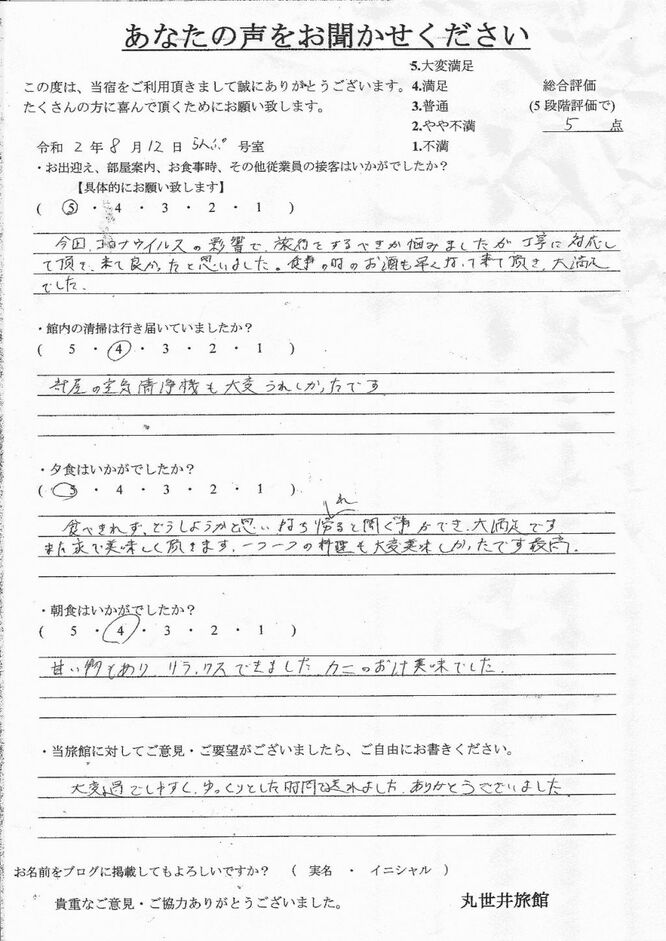 あなたの声をお聞かせください
5.大変満足
この度は、当宿をご利用頂きまして誠にありがとうございます。 4.満足 総合評価
たくさんの方に喜んで頂くためにお願い致します。 3.普通 (5段階評価で)
2.やや不満 5 点
令和 2 年 8 月 12 日 号室 1.不満
・お出迎え、部屋案内、お食事時、その他従業員の接客はいかがでしたか?
【具体的にお願い致します】
( 5 ・ 4 ・ 3 ・ 2 ・ 1 )
今回、コロナウイルスの影響で、旅行をするべきか悩みましたが丁寧に対応し
て頂て、来て良かったと思いました。食事の時のお酒も早くもって来て頂き、大満足
でした.
・館内の清掃は行き届いていましたか?
( 5 ・ 4 ・ 3 ・ 2 ・ 1 )
部屋の空気清浄機も大変うれしかったです
・夕食はいかがでしたか?
( 5 ・ 4 ・ 3 ・ 2 ・ 1 )
れ
食べきれず、どうしようかと思い持ち帰ると聞く事ができ、大満足です
また家で美味しく頂きます、一つ一つの料理も大変美味しかったです最高.
・朝食はいかがでしたか?
( 5 ・ 4 ・ 3 ・ 2 ・ 1 )
甘い物もあり リラックスできました カニのおけ美味でした.
・当旅館に対してご意見・ご要望がございましたら、ご自由にお書きください。
大変過でしやすく、ゆっくりとした時間を送れました.ありがとうございました.
お名前をブログに掲載してもよろしいですか? ( 実名 ・ イニシャル )
貴重なご意見・ご協力ありがとうございました。 丸世井旅館